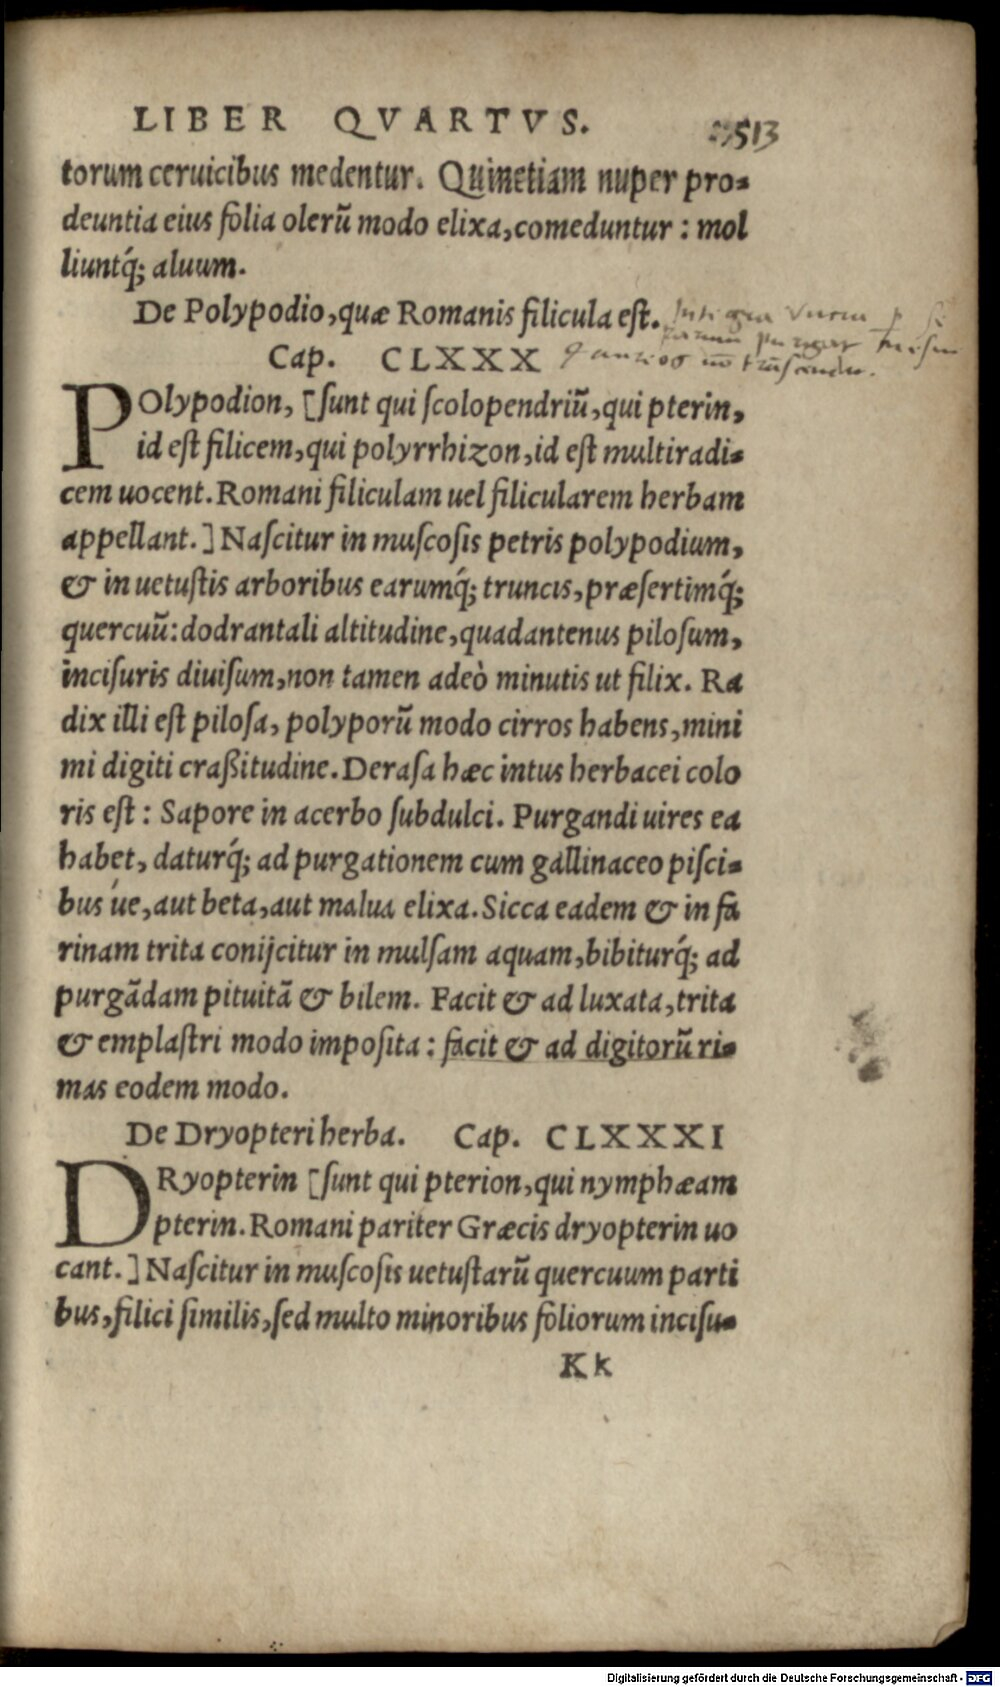 LIBER QVARTVS. 513
torum ceruicibus medentur. Quinetiam nuper pro-
deuntia eius folia olerũ modo elixa, comeduntur : mol
liuntq́; aluum.
De Polypodio, quæ Romanis filicula est.
Cap. CLXXX
POlypodion, [sunt qui scolopendriũ, qui pterin,
id est filicem, qui polyrrhizon, id est multiradi-
cem uocent. Romani filiculam uel filicularem herbam
appellant.] Nascitur in muscosis petris polypodium,
& in uetustis arboribus earumq́; truncis, præsertimq́;
quercuũ: dodrantali altitudine, quadantenus pilosum,
incisuris diuisum, non tamen adeò minutis ut filix. Ra
dix illi est pilosa, polyporũ modo cirros habens, mini
mi digiti craßitudine. Derasa hæc intus herbacei colo
ris est : Sapore in acerbo subdulci. Purgandi uires ea
habet, daturq́; ad purgationem cum gallinaceo pisci-
bus úe, aut beta, aut malua elixa. Sicca eadem & in fa
rinam trita conijcitur in mulsam aquam, bibiturq́; ad
purgãdam pituitã & bilem. Facit & ad luxata, trita
& emplastri modo imposita : facit & ad digitorũ ri-
mas eodem modo.
De Dryopteri herba. Cap. CLXXXI
DRyopterin [sunt qui pterion, qui nymphæam
pterin. Romani pariter Græcis dryopterin uo
cant.] Nascitur in muscosis uetustarũ quercuum parti
bus, filici similis, sed multo minoribus foliorum incisu-
Kk
Digitalisierung gefördert durch die Deutsche Forschungsgemeinschaft - DFG